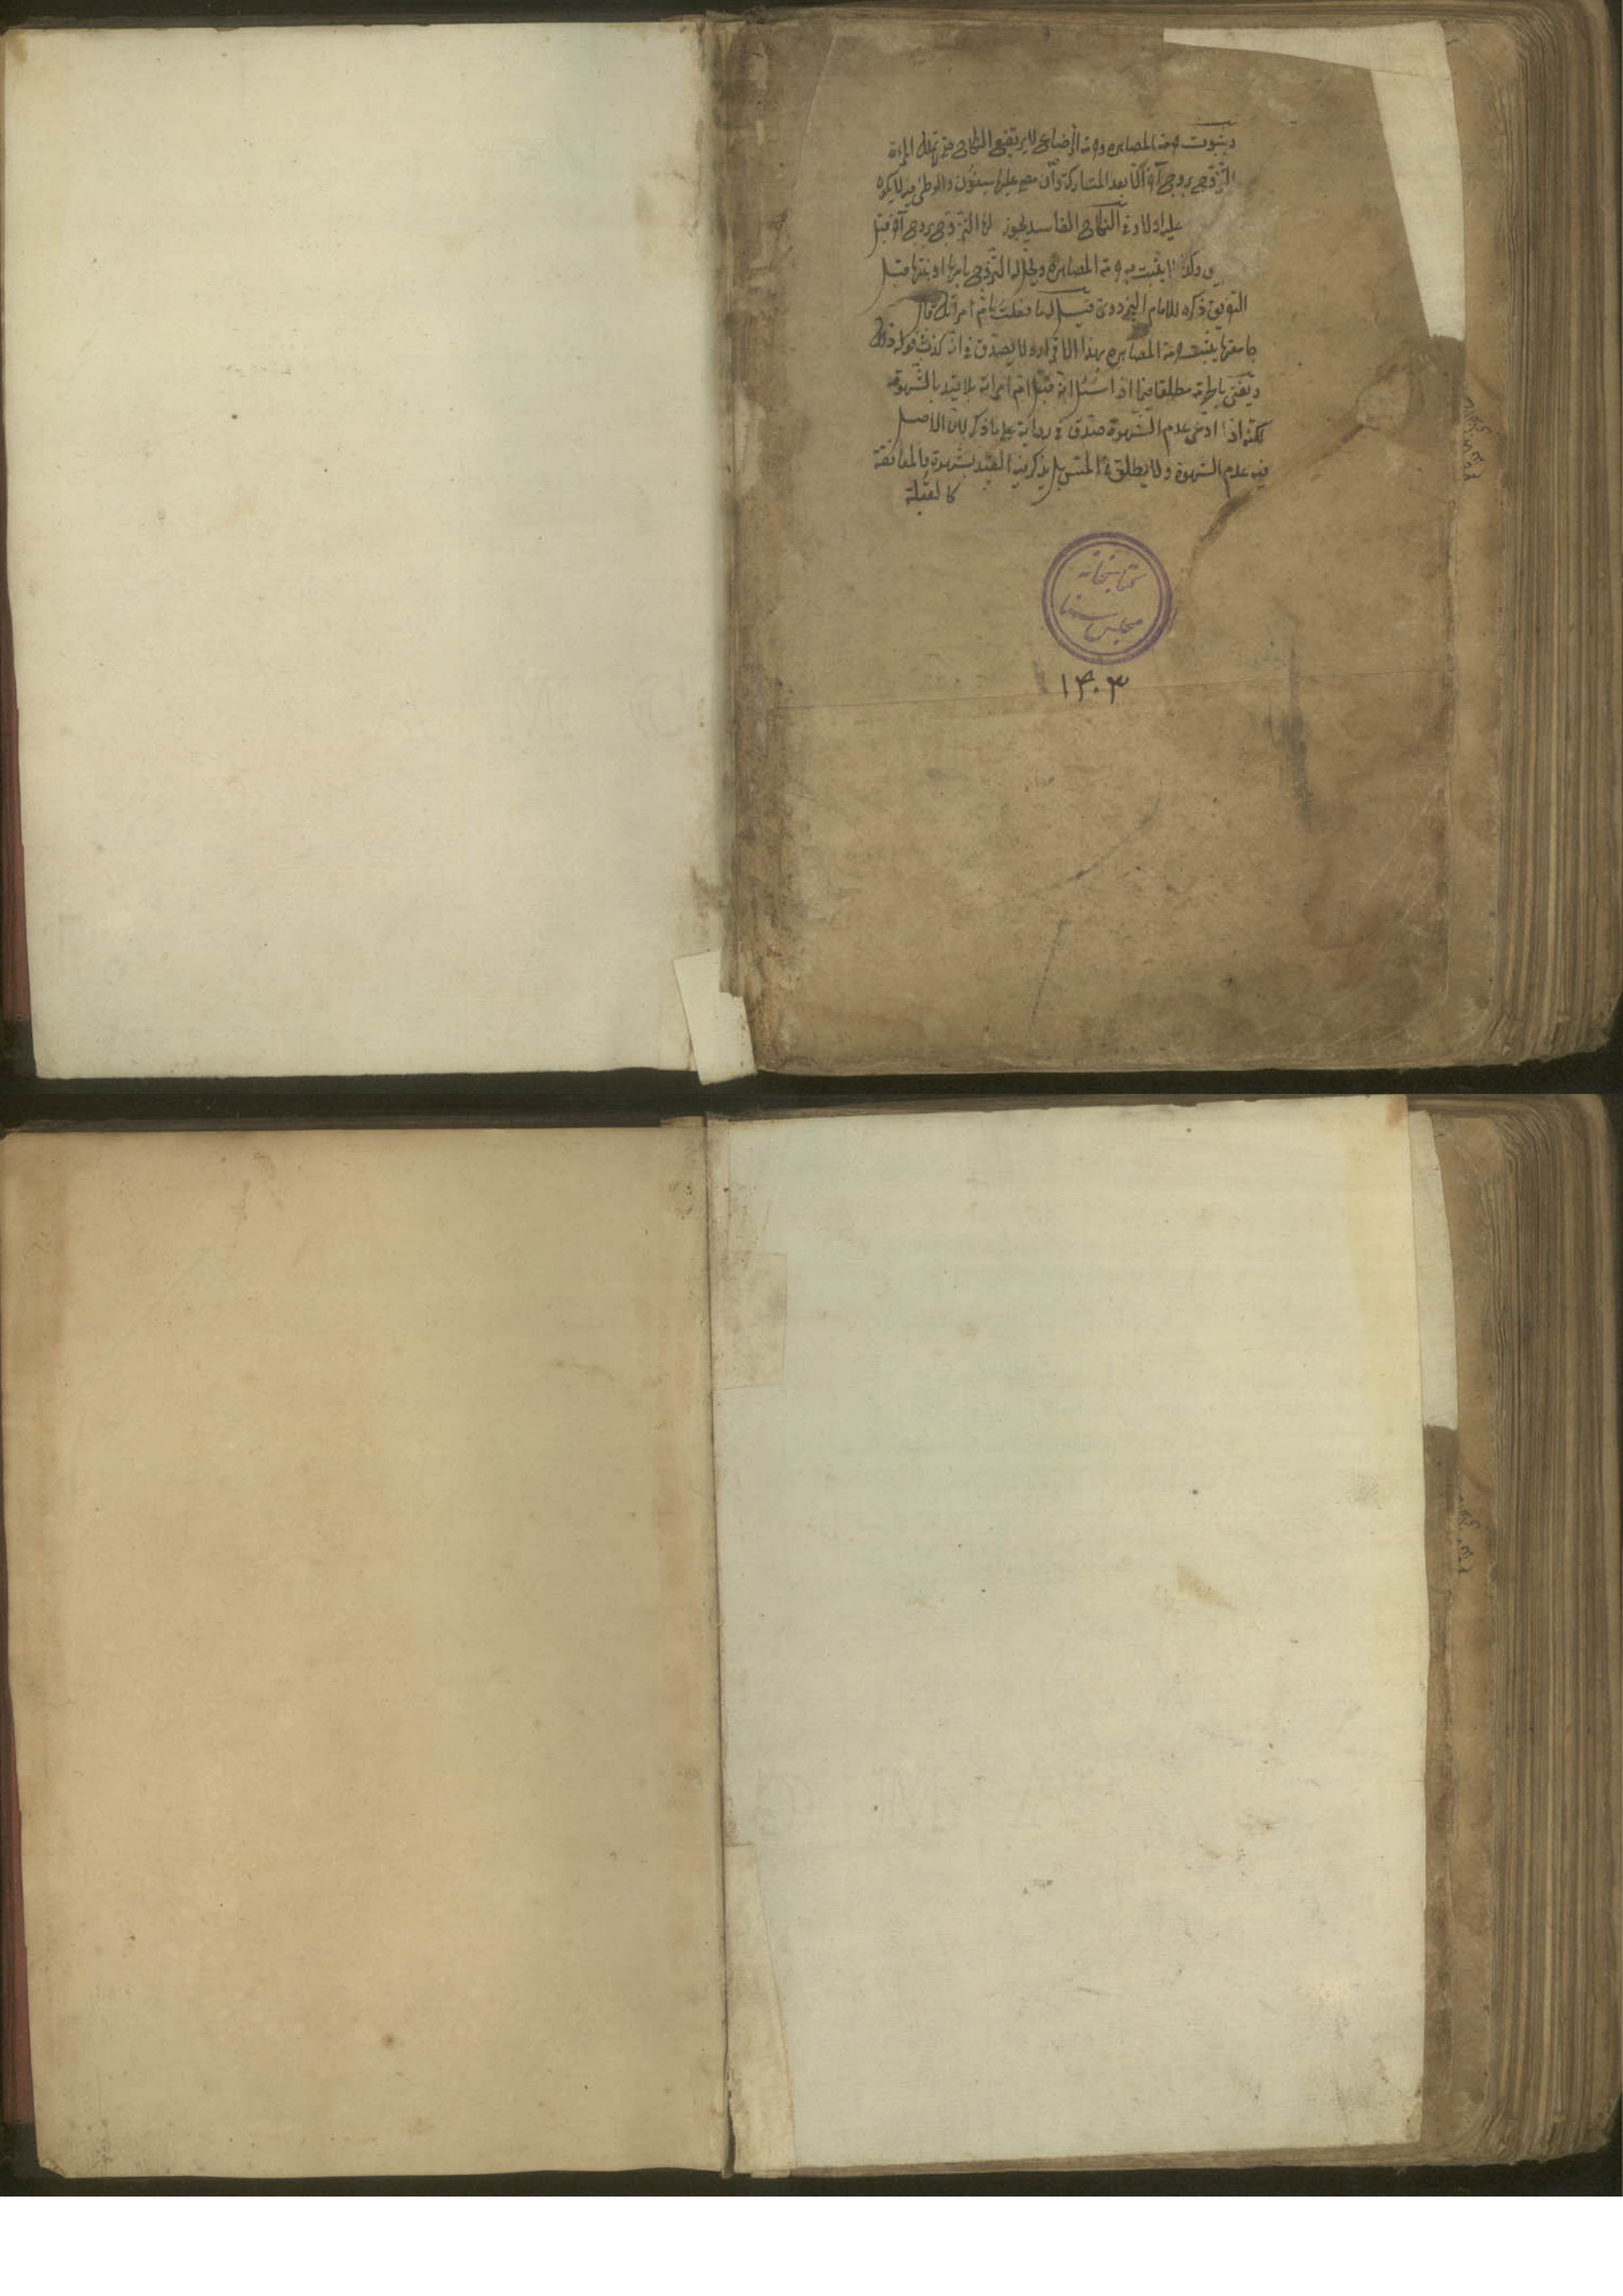 وبثبوت حرمة المصاهرة وحرمة الرضاع لا يرتفع النكاح حتى لا تملك المرءة
التزوج بزوج آخر الا بعد المتاركة وان مضى عليها سنون والوطئ فيه لا يكون
عليه اولاد في النكاح الفاسد يجوز لها التزوج بزوج آخر قبل
وكذا لا يثبت به حرمة المصاهرة ويحل له التزوج بامها او بنتها قبل
التفريق ذكره الامام البزدوي قيل له ما فعلت بام امراتك قال
جامعتها يثبت حرمة المصاهرة بهذا الاقرار ولا يصدق في انه كذب قوله ذلك
ويفتى بالحرمة مطلقا فيما اذا سئل انه قبل ام امراته بلا قيد بالشهوة
لكنه اذا ادعى عدم الشهوة صدق في رواية على ما ذكر لان الاصل
فيه عدم الشهوة ولا يطلق في المس بل يذكر فيه القيد بشهوة والمعانقة
كالقبلة
كتابخانه
مجلس سنا
۱۴۰۳